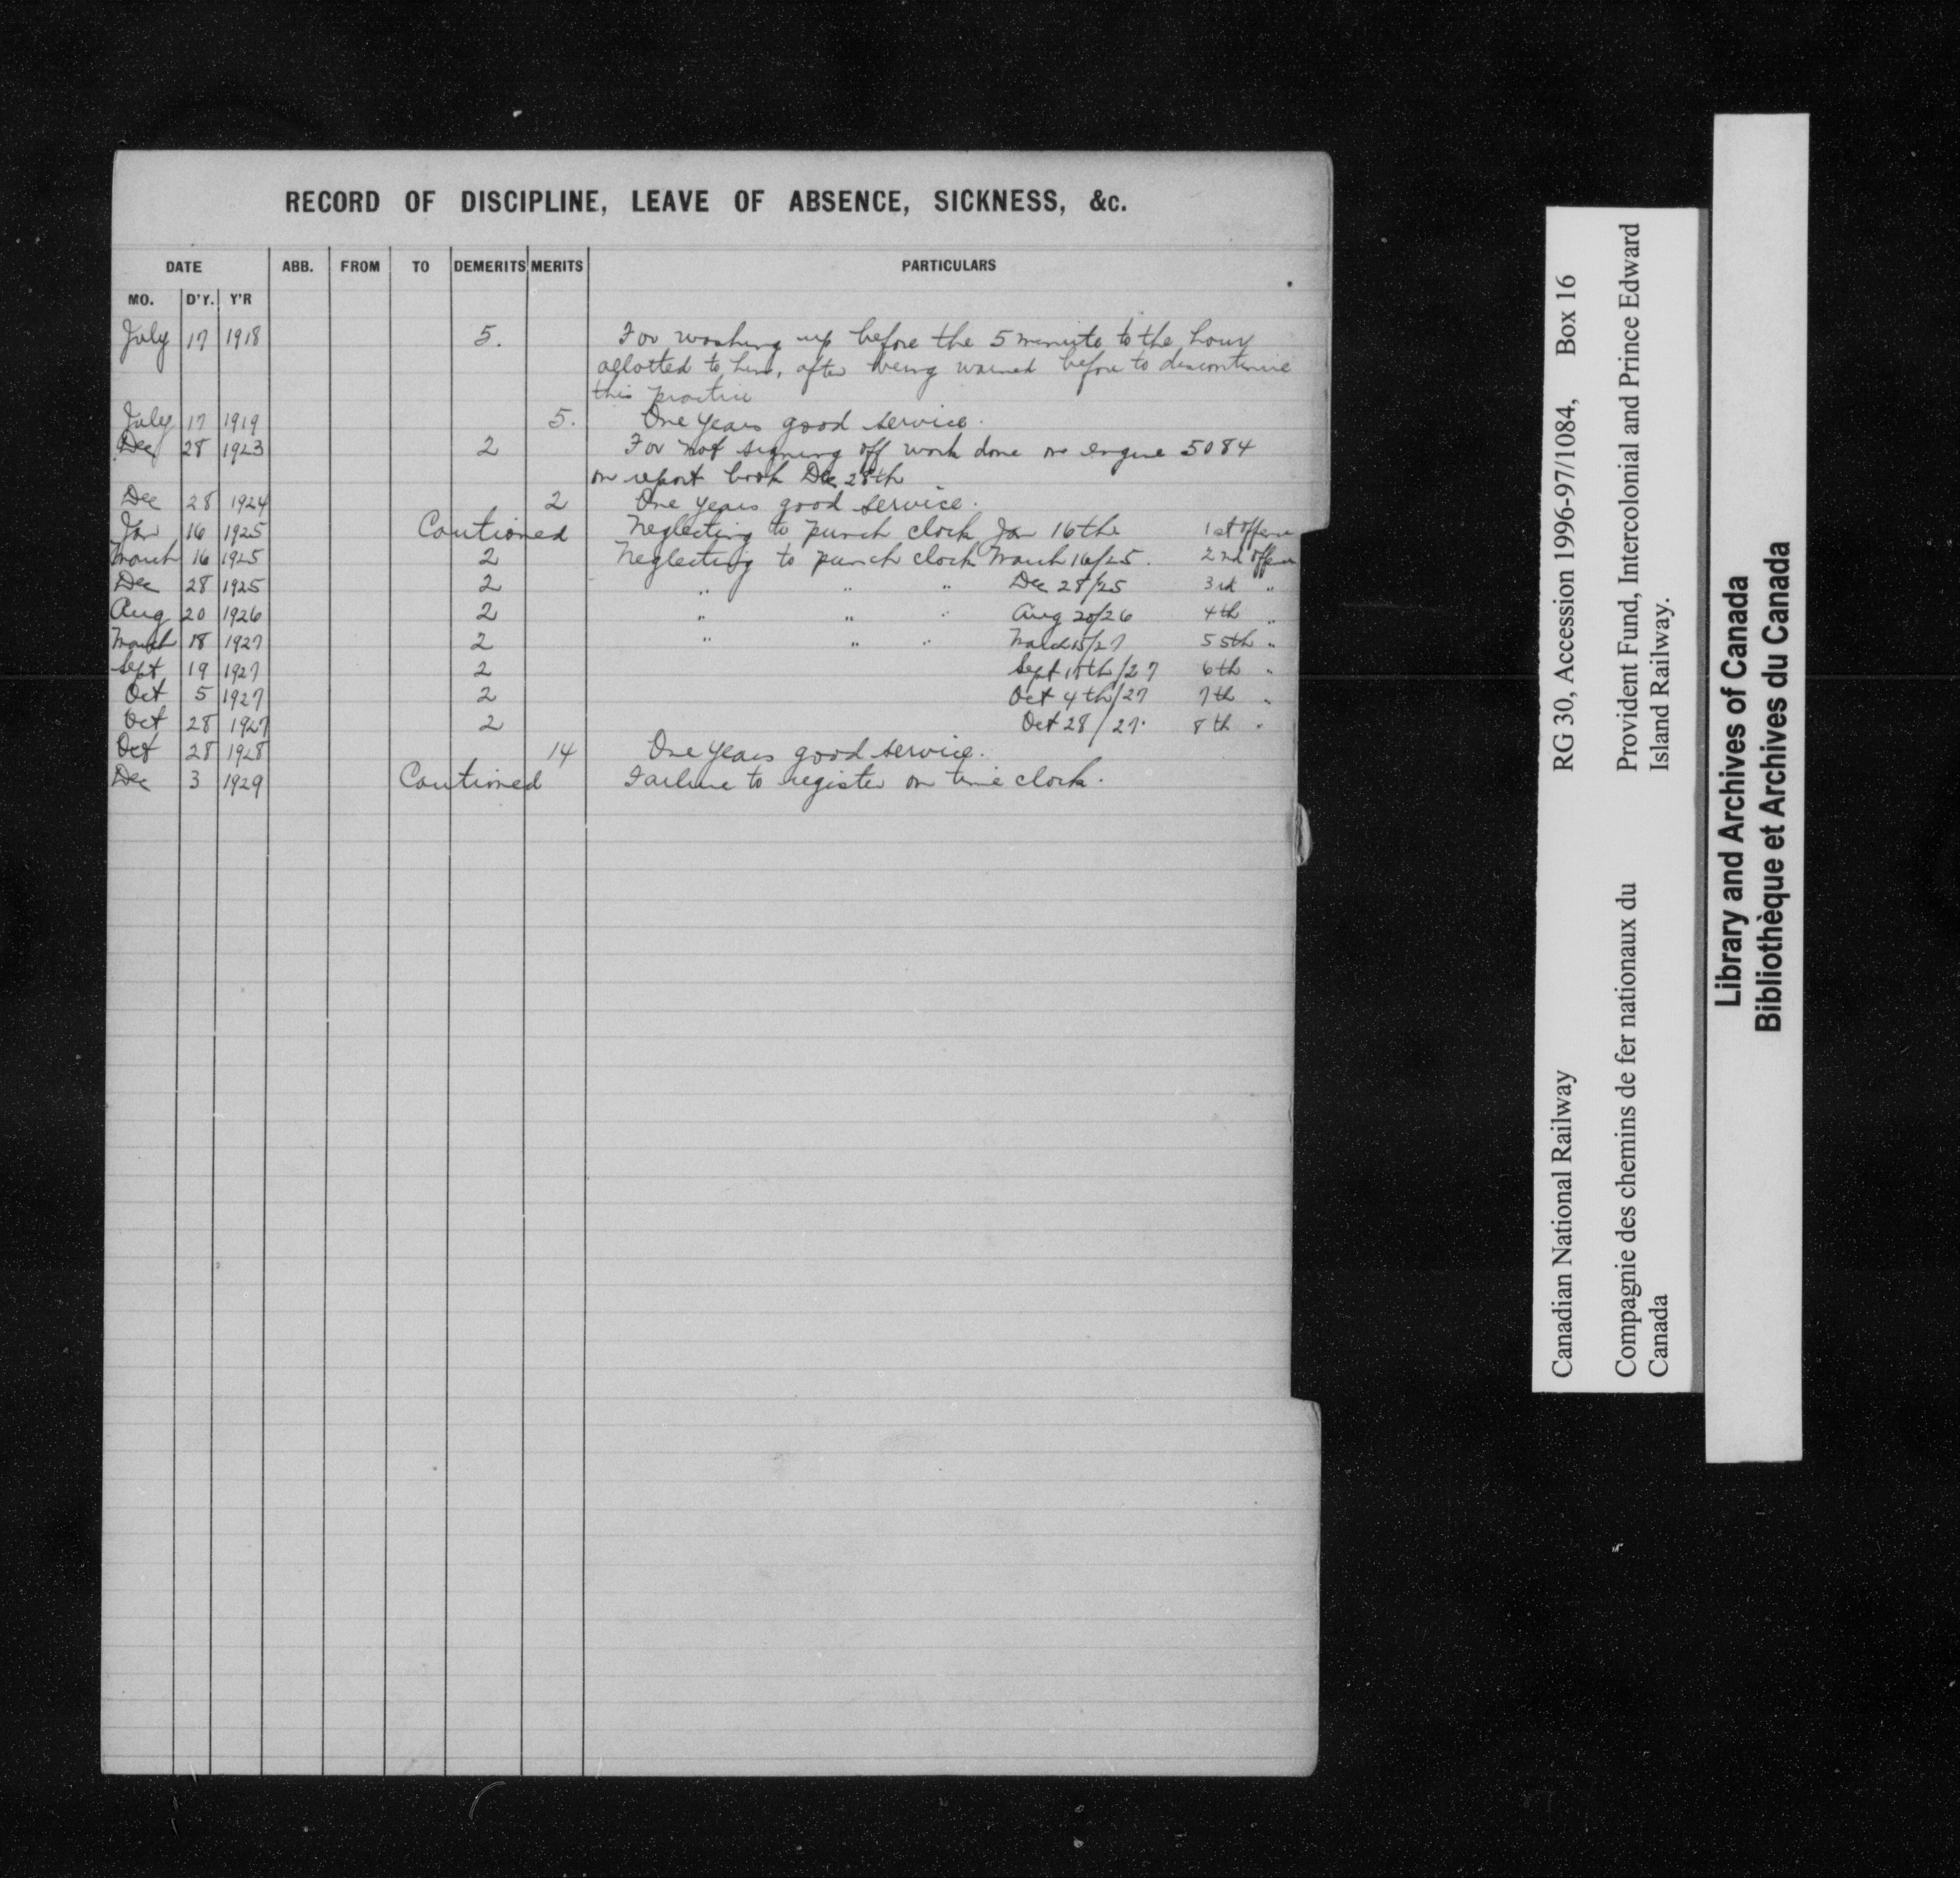 RECORD OF DISCIPLINE, LEAVE OF ABSENCE, SICKNESS, &c.
DATE ABB. FROM TO DEMERITS MERITS PARTICULARS
MO. D'Y. Y'R
July 17 1918 5. For washing up before the 5 minute to the hour
allotted to him, after being warned before to discontinue
this practice
July 17 1919 5. One years good service.
Dec 28 1923 2 For not signing off work done on engine 5084
on report book Dec 28th
Dec 28 1924 2 One years good service.
Jan 16 1925 Cautioned Neglecting to punch clock Jan 16th 1st offence
March 16 1925 2 Neglecting to punch clock March 16/25. 2nd offence
Dec 28 1925 2 " " " Dec 28/25 3rd "
Aug 20 1926 2 " " " Aug 20/26 4th "
March 18 1927 2 " " " March /27 5 5th "
Sept 19 1927 2 Sept /27 6th "
Oct 5 1927 2 Oct 4th/27 7th "
Oct 28 1927 2 Oct 28/27. 8th "
Oct 28 1928 14 One years good service.
Dec 3 1929 Cautioned Failure to register on time clock.
Canadian National Railway RG 30, Accession 1996-97/1084, Box 16
Compagnie des chemins de fer nationaux du Provident Fund, Intercolonial and Prince Edward
Canada Island Railway.
Library and Archives of Canada
Bibliothèque et Archives du Canada